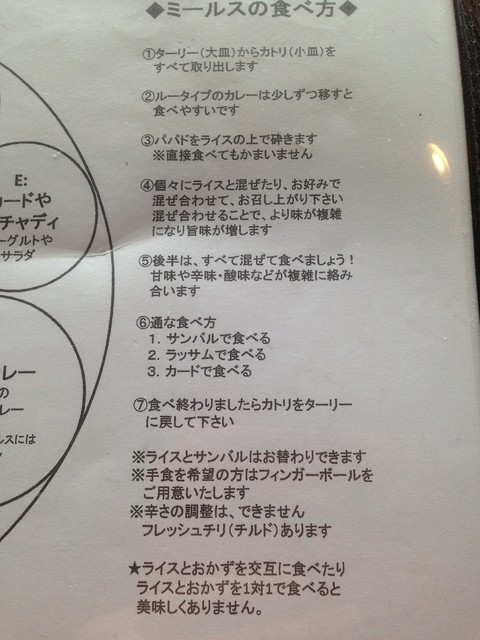 ◆ミールスの食べ方◆
①ターリー(大皿)からカトリ(小皿)を
すべて取り出します
②ルータイプのカレーは少しずつ移すと
食べやすいです
③パパドをライスの上で砕きます
※直接食べてもかまいません
④個々にライスと混ぜたり、お好みで
混ぜ合わせて、お召し上がり下さい
混ぜ合わせることで、より味が複雑
になり旨味が増します
⑤後半は、すべて混ぜて食べましょう!
甘味や辛味・酸味などが複雑に絡み
合います
⑥通な食べ方
1. サンバルで食べる
2. ラッサムで食べる
3. カードで食べる
⑦食べ終わりましたらカトリをターリー
に戻して下さい
※ライスとサンバルはお替わりできます
※手食を希望の方はフィンガーボールを
ご用意いたします
※辛さの調整は、できません
フレッシュチリ(チルド)あります
★ライスとおかずを交互に食べたり
ライスとおかずを1対1で食べると
美味しくありません。
E:
ードや
チャディ
ーグルトや
サラダ
レー
の
レー
ルスには